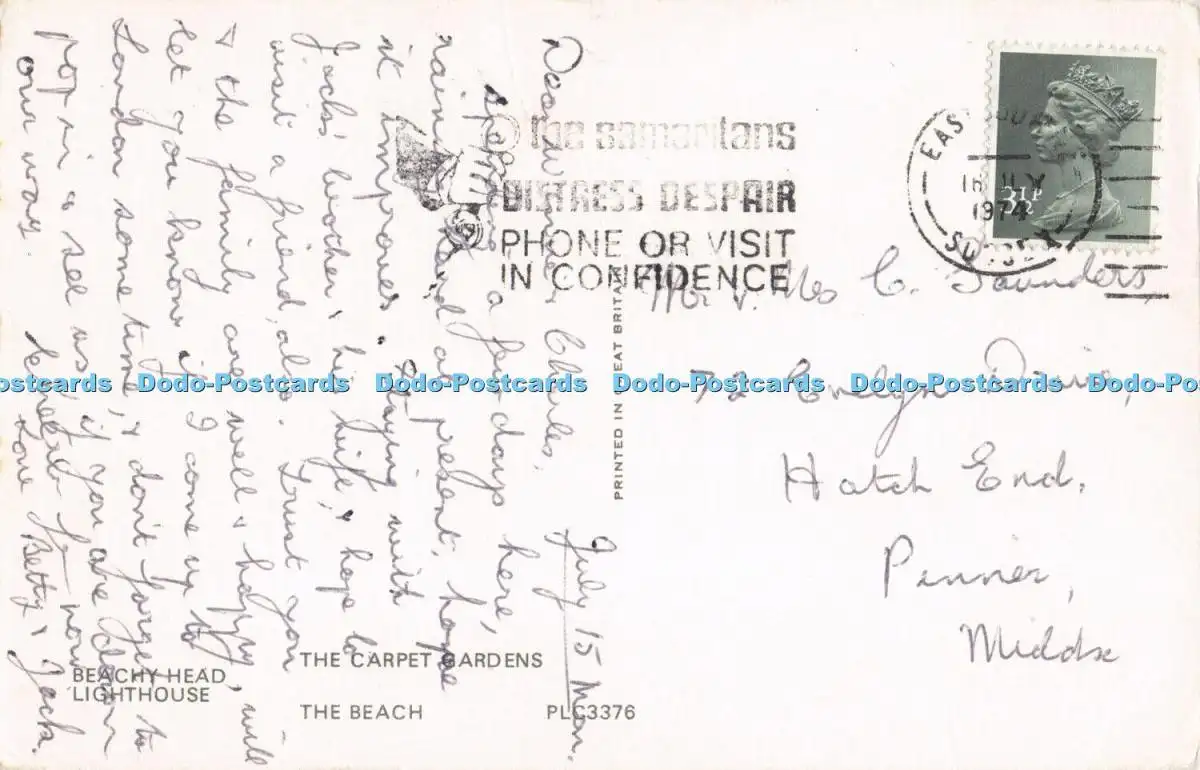 July 15 Mon.
Dear & Charles,
Spending a few days here,
raining and at present, hope
it improves. Staying with
Jack's brother & his wife, & hope to
visit a friend, also. Trust you
& the family are well & happy, will
let you know if I come up to
London some time, & don't forget to
pop in & see us, if you are down
our way. for now
Love Betty & Jack.
The samaritans
DISTRESS DESPAIR
PHONE OR VISIT
IN CONFIDENCE
EASTBOURNE
1974
SUSSEX
3½P
Mr & Mrs C. Saunders,
72 Evelyn Drive,
Hatch End,
Pinner,
Middx
PRINTED IN GREAT BRITAIN
Dodo-Postcards Dodo-Postcards Dodo-Postcards Dodo-Postcards Dodo-Postcards
BEACHY HEAD
LIGHTHOUSE
THE CARPET GARDENS
THE BEACH
PLC3376